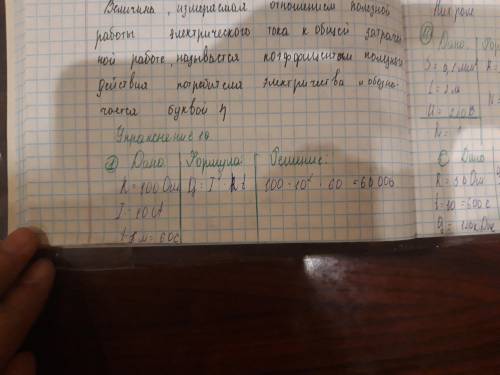 Величина, измеряемая отношением полезной
работы электрического тока к общей затрачен
ной работе, называется коэффициентом полезного
действия потребителя электричества и обозна-
чается буквой η
Упражнение 10.
① Дано Формула: Решение:
R = 100 Ом Q = I² · R t 100 · 10² · 60 = 60 000
I = 10 A
t 1 м = 60 с
Дано
S = 0,1 мм²
L = 2 м
U = 220 В
Дано
R = 30 Ом
t = 10 = 600 с